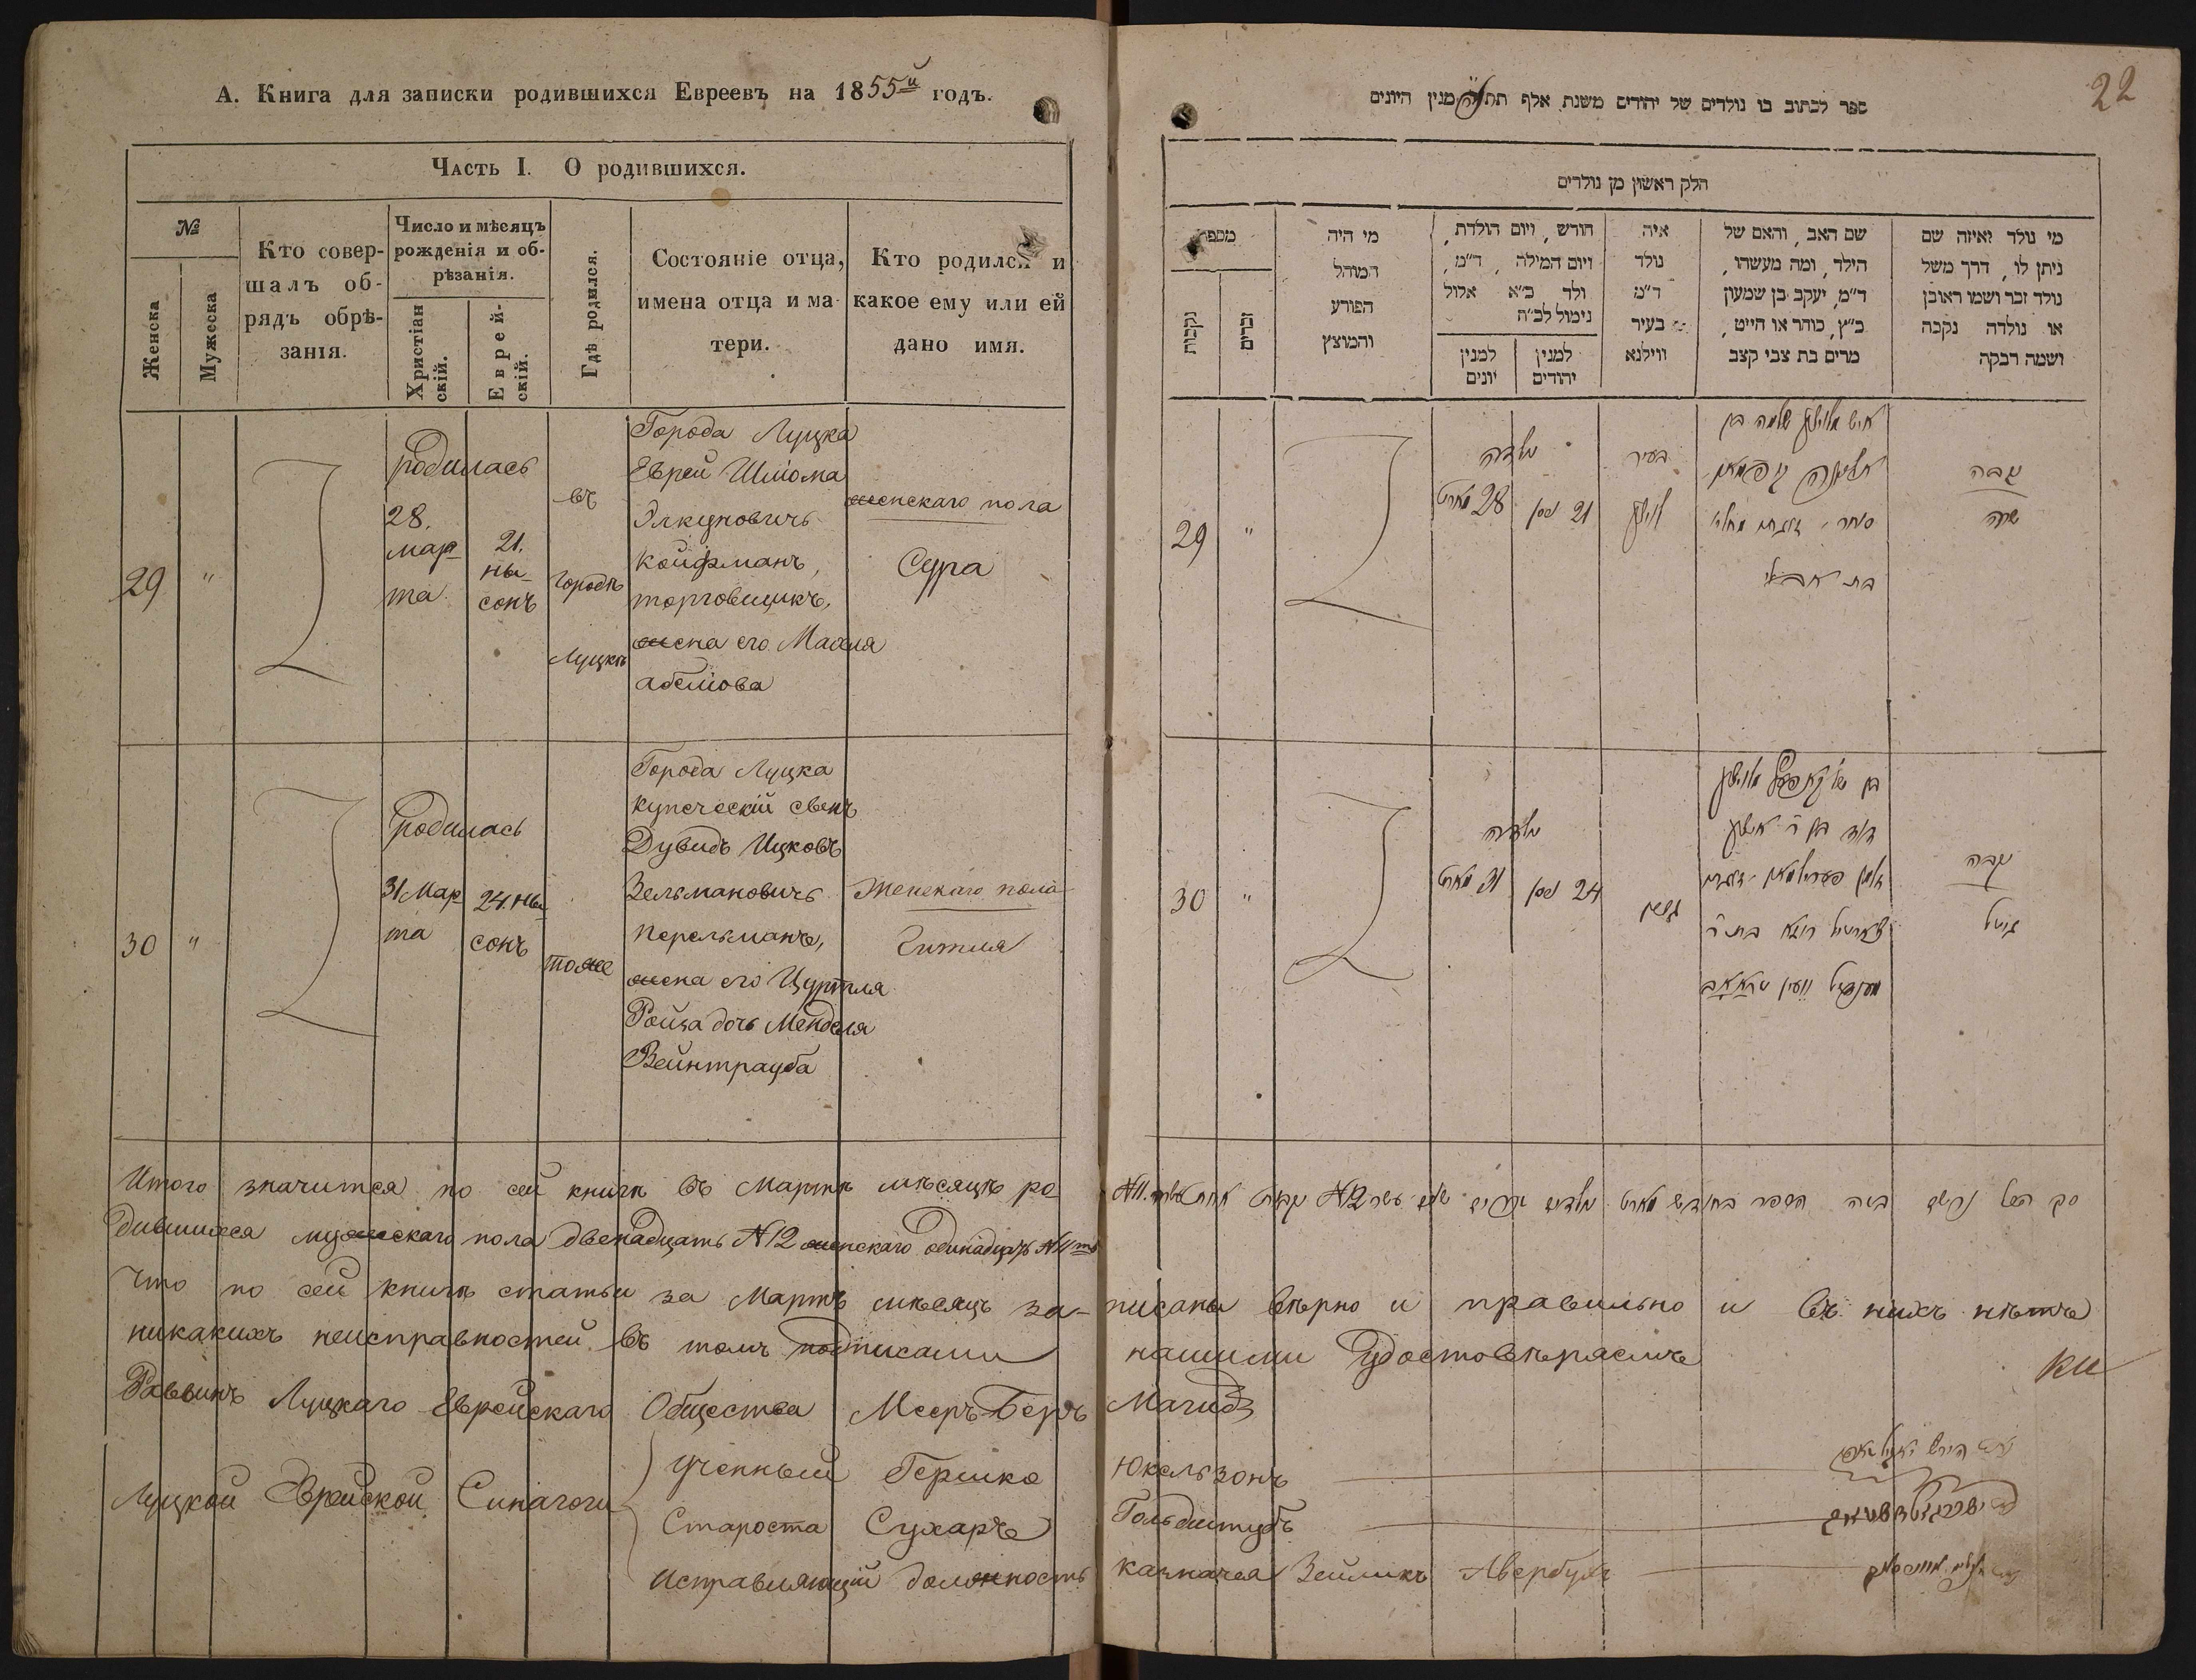 А. Книга для записки родившихся Евреевъ на 1855й годъ.
Часть I. О родившихся.
№
Женска
Мужеска
Кто совер-
шалъ об-
рядъ обрѣ-
занія.
Число и мѣсяцъ
рожденія и об-
рѣзанія.
Христіан
скій.
Еврей-
скій.
Гдѣ родился.
Состояніе отца,
имена отца и ма
тери.
Кто родился и
какое ему или ей
дано имя.
29
"
родилась
28.
мар
та
21.
ны-
сонъ
въ
городѣ
Луцкѣ
Города Луцка
Еврей Шліома
Элкуновичъ
Койфманъ,
торговщикъ,
жена его Махля
абеліова
женскаго пола
Сура
30
"
родилась
31 Мар
та
24. ны
сонъ
тоже
Города Луцка
купеческій сынъ
Дувидъ Ицковъ
Зельмановичъ
Перельманъ,
жена его Цуртля
Ройза дочь Менделя
Вейнтрауба
Женскаго пола
Гитля
Итого значится по сей книгѣ въ Мартѣ мѣсяцѣ ро
дившихся мужескаго пола двенадцать №12 женскаго одинадцать №11ть
Что по сей книгѣ статьи за Мартъ мѣсяцъ за-
писаны вѣрно и правильно и въ нихъ нѣтъ
никакихъ неисправностей въ томъ подписами
нашими удостовѣряемъ
Раввинъ Луцкаго Еврейскаго Общества Мееръ-Беръ Магидъ
Луцкой Еврейской Синагоги
ученный Гершко Юкельзонъ
Староста Сухаръ Гольдштубъ
исправляющій должность казначея Зейликъ Авербухъ
22
ספר לכתוב בו נולדים של יהודים משנת אלף תת מנין היונים
חלק ראשון מן נולדים
מספר
נקבות
זכרים
מי היה
המוהל
הפורע
והמוצץ
חודש, ויום הולדת,
ויום המילה, ד״מ,
ולד כ״א אלול
נימול לב״ה
למנין
יונים
למנין
יהודים
איה
נולד
ד״מ
בעיר
ווילנא
שם האב, והאם של
הילד, ומה מעשהו,
ד״מ, יעקב בן שמעון
כ״ץ, סוחר או חייט,
מרים בת צבי קצב
מי נולד ואיזה שם
ניתן לו, דרך משל
נולד זכר ושמו ראובן
או נולדה נקבה
ושמה רבקה
29
"
נולדה
28 מארט
21 ניסן
בעיר
לויצק
נקבה
שרה
30
"
נולדה
31 מארט
24 ניסן
נקבה
גיטל